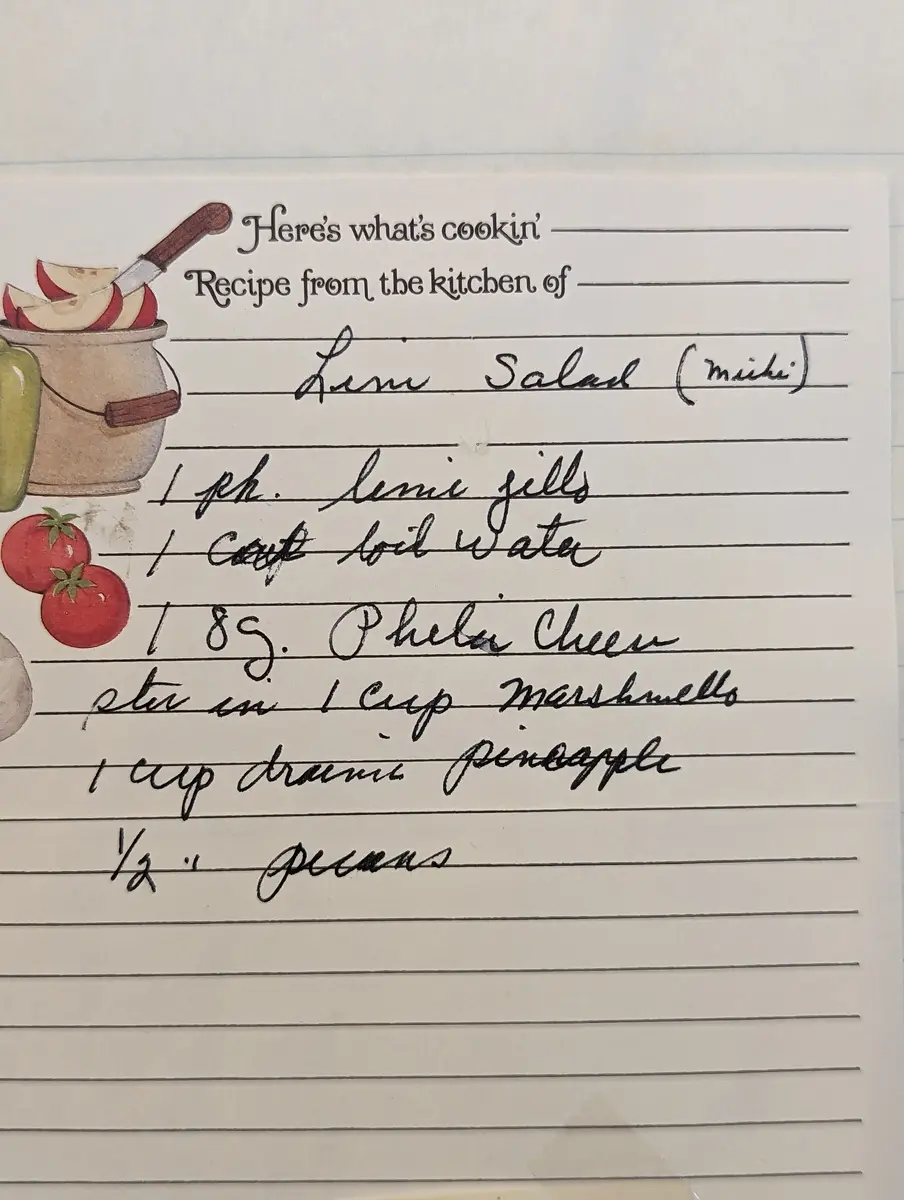 Here's what's cookin'
Recipe from the kitchen of
Lime Salad (Micki)
1 pk. lime jello
1 boil water
1 8 Phela Cheese
ster in 1 cup marshmello
1 cup drainie pineapple
1/2 " pecans